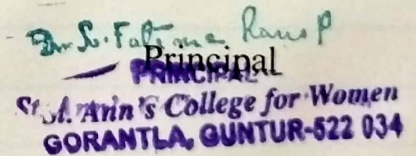 Dr. S. Fatima Rani P
Principal
PRINCIPAL
St. Ann's College for Women
GORANTLA, GUNTUR-522 034